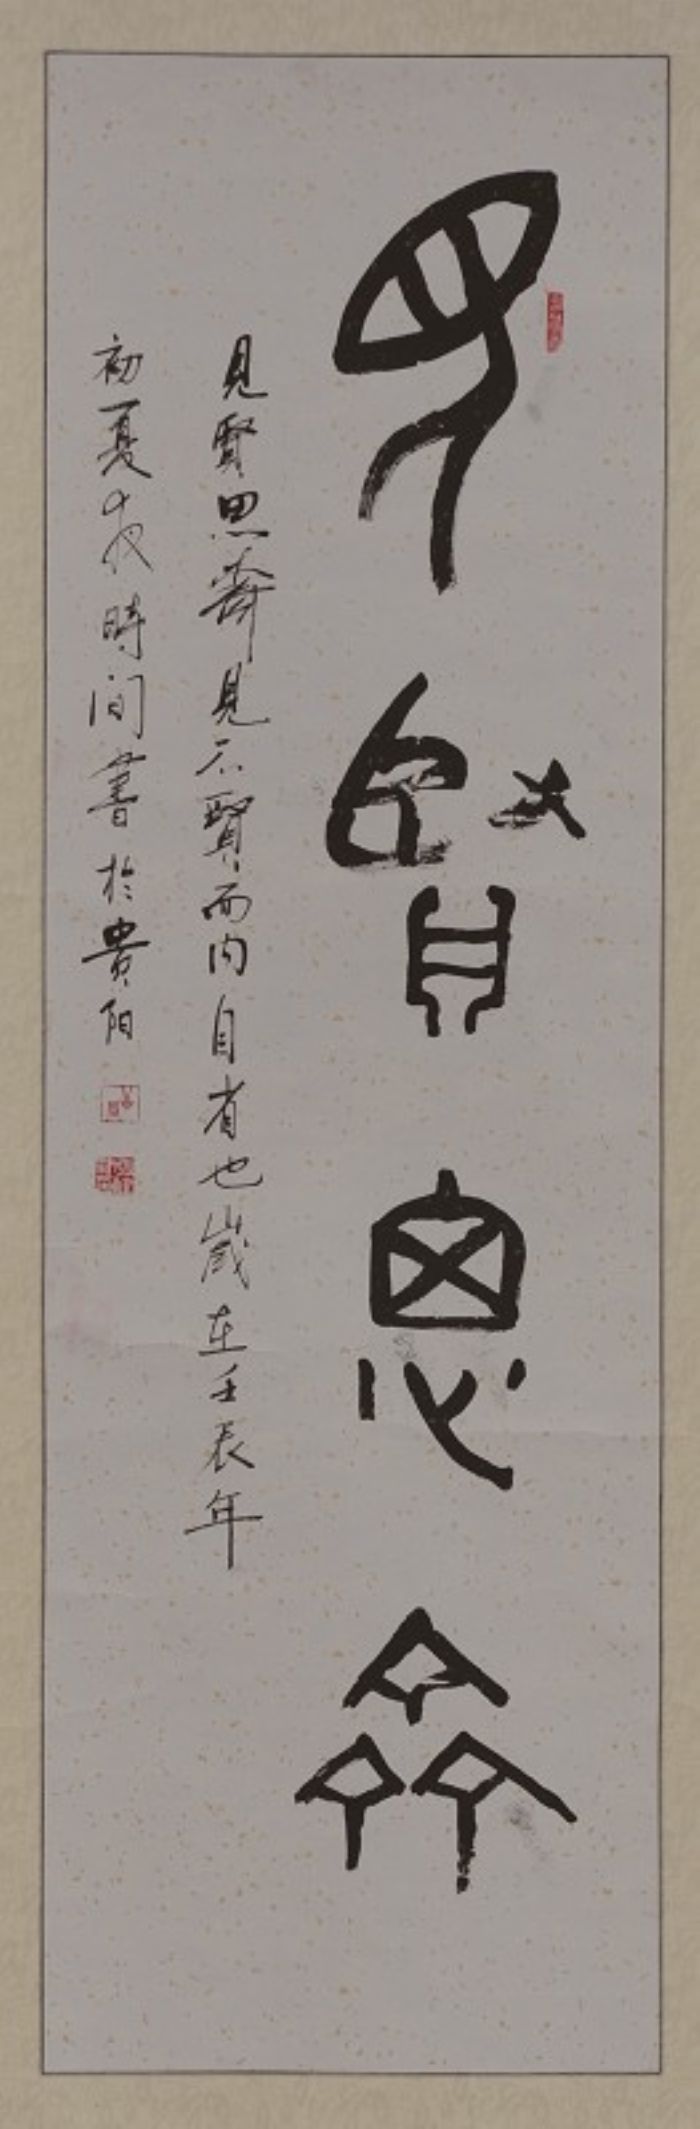 見賢思齊
見賢思齊見不賢而内自省也歲在壬辰年
初夏夜時間書於貴陽